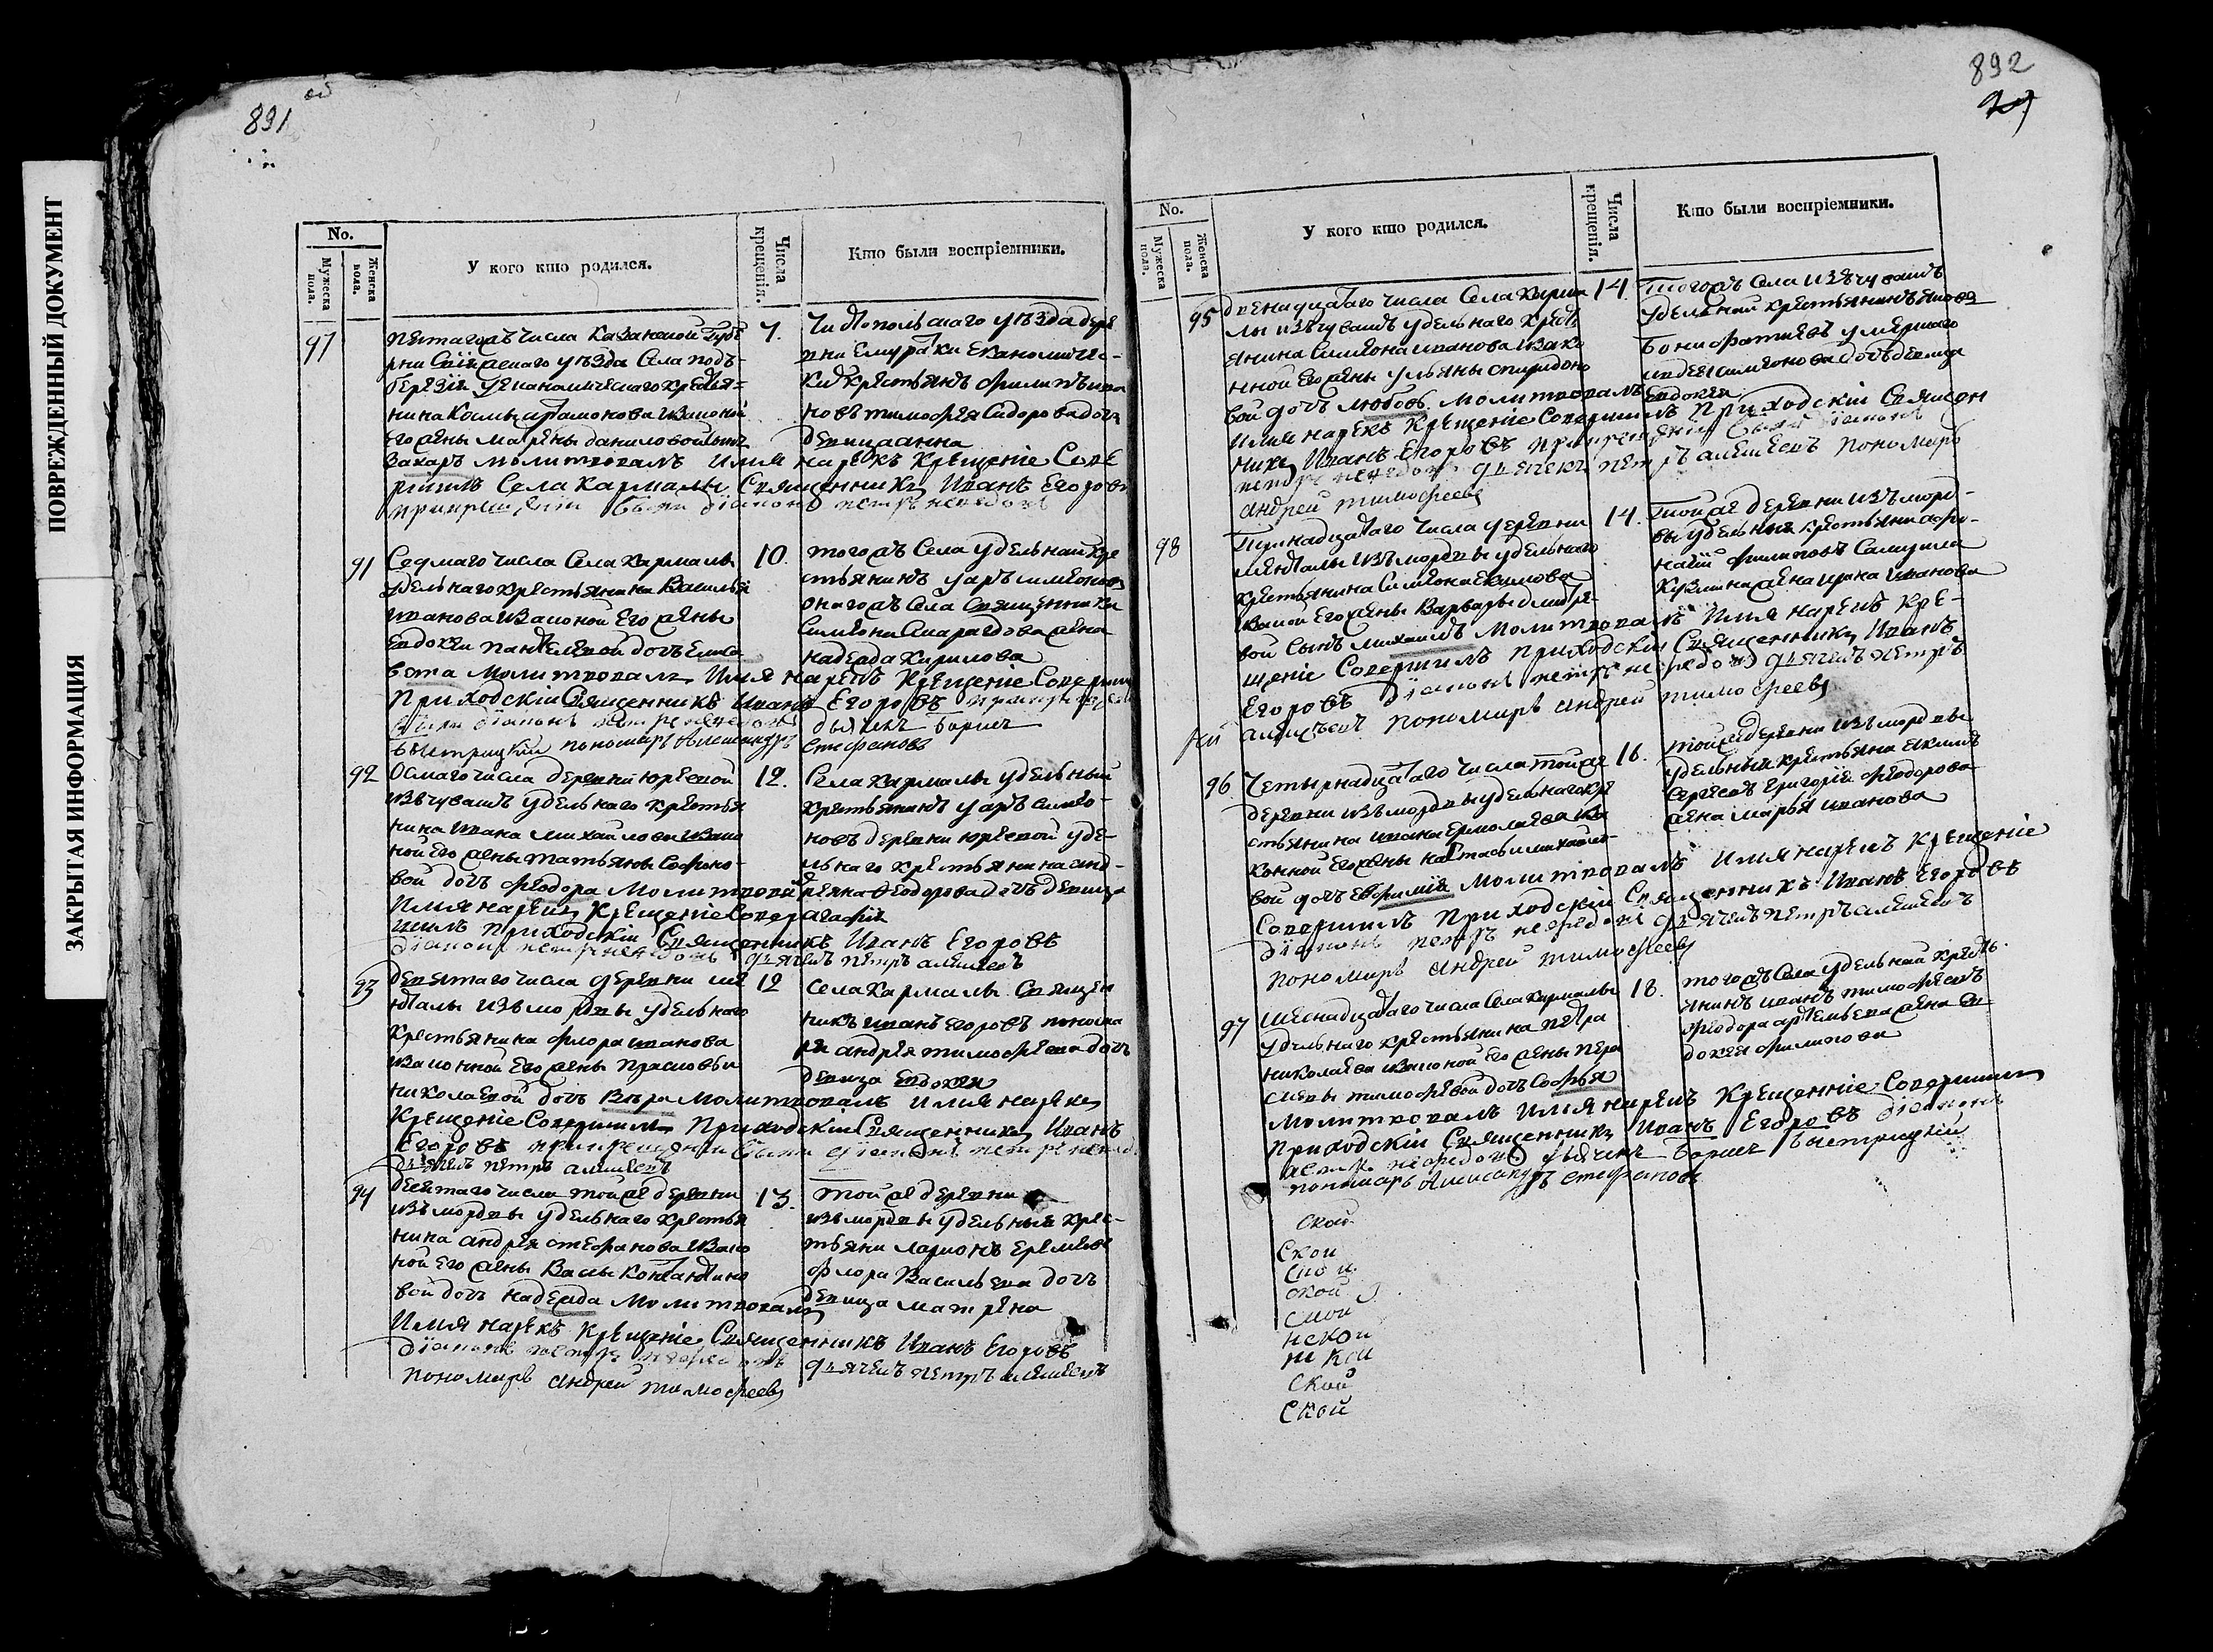 ПОВРЕЖДЕННЫЙ ДОКУМЕНТ
ЗАКРЫТАЯ ИНФОРМАЦИЯ
891
No.
Мужеска пола.
Женска пола.
У кого кто родился.
Числа крещенія.
Кто были воспріемники.
97
пятагожъ числа Казанской Губе
рни уѣзда Села подъ-
березїи Уекономическаго крестья=
нина Козмы изаконой
его жены матрены даниловой сынъ
Захаръ молитвовалъ Имя нарекъ Крещеніе Сове
ршилъ Села Кармалы Священникъ Иванъ Егоровъ
при крещенїи были дїаконъ петръ
7.
Чистопольскаго уѣзда дере
вни Емуратки Економиче-
киѣ крестьянъ филипъ ива
новъ тимофея Сидорова дочь
девица анна
91
Седмаго числа Села Кармалы
удельнаго крестьянина Василья
иванова изаконой его жены
Евдокеи пантелевой дочь Елиса
вета Молитвовалъ Имя нарекъ Крещеніе Соверши
Приходскїй Священникъ Иванъ Егоровъ
были дїаконъ петръ дьячекъ борисъ
быстрицкїй пономарь Александръ стефановъ
10.
тогожъ Села удельнай кре
стьянинъ уаръ симеонов
оногожъ Села Священника
Симеона Смарагдова жена
надежда Кирилова
92
Осмаго числа деревни юреевой
изъ чувашъ удельнаго крестья
нина Ивана михайлова изако
ной его жены татьяны Софоно-
вой дочь Феодора Молитвовал
Имя нарекъ Крещеніе Совер
шилъ Приходскїй Священникъ Иванъ Егоровъ
дїаконъ петръ дьячекъ петръ алексеевъ
12.
Села Кармалы удельный
крестьянинъ уаръ симео-
новъ деревни юреевой уде-
льнаго крестьянина анд-
реяна Феодорова дочь девица
агафия
93
девятаго числа деревни ше
нталы изъ мордвы удельнаго
крестьянина флора иванова
изаконной его жены прасковьи
николаевой дочь Вера Молитвовалъ Имя нарекъ
Крещеніе Совершилъ Приходскїй Священникъ Иванъ
Егоровъ при крещенїи были дїаконъ петръ
дьячекъ петръ алексеевъ
12
Села Кармалы Священ
никъ иванъ Егоровъ понома
ря андрея тимофеева дочь
девица Евдокея
94
десятаго числа тойже деревни
изъ мордвы удельнаго крестья
нина андрея стефанова изако
ной его жены Васы Константино
вой дочь надежда Молитвовалъ
Имя нарекъ Крещеніе Священникъ Иванъ Егоровъ
дїаконъ петръ дьячекъ петръ алексеевъ
пономарь андрей тимофеевъ
13.
тойже деревни
изъ мордвы удельныя крес-
тьяни ларионъ Еремеев
флора Васильева дочь
девица матрена
892
No.
Мужеска пола.
Женска пола.
У кого кто родился.
Числа крещенія.
Кто были воспріемники.
95
двенадцатаго числа Села Карма
лы изъ чувашъ удельнаго крест
янина Симеона иванова изако
нной его жены ульяны спиридоно
вой дочь любовь. молитвовалъ
Имя нарекъ Крещеніе Совершилъ Приходскїй Священ
никъ Иванъ Егоровъ при крещенїи были дїаконъ
петръ дьячекъ петръ алексеевъ пономарь
андрей тимофеевъ
14.
Тогожъ Села изъ чувашъ
удельной крестьянинъ яковъ
Бонифатиевъ умершаго
симеонова дочь девица
Евдокея
98
Тринадцатаго числа деревни
шенталы изъ мордвы удельнаго
крестьянина Симеона Екимова
изаконой его жены Варвары дмитре-
вой сынъ михаилъ Молитвовалъ Имя нарекъ Кре-
щеніе Совершилъ приходскїй Священникъ Иванъ
Егоровъ дїаконъ петръ дьячекъ петръ
алексеевъ пономарь андрей тимофеевъ
14.
Тойже деревни изъ морд-
вы удельныя крестьяни афо-
насїй филиповъ Самуила
Кузмина жена ирина иванова
96
Четырнадцатаго числа тойже
деревни изъ мордвы удельнаго кре
стьянина ивана Ермолаева иза
конной его жены настасьи михайло-
вой дочь Ефимия Молитвовалъ Имя нарекъ Крещеніе
Совершилъ Приходскїй Священникъ Иванъ Егоровъ
дїаконъ петръ дьячекъ петръ алексеевъ
пономарь андрей тимофеевъ
16.
тойже деревни изъ мордвы
удельныя крестьяна Екимъ
Сергеевъ Григорїя феодорова
жена марья иванова
97
Шеснадцатаго числа Села Кармалы
удельнаго крестьянина петра
николаева изаконой его жены
тимофеевой дочь Софья
Молитвовалъ Имя нарекъ Крещенніе Совершилъ
Приходскїй Священникъ Иванъ Егоровъ дїаконъ
петръ дьячекъ борисъ быстрицкїй
пономарь Александръ стефановъ
18.
тогожъ Села удельнай кресть-
янинъ иванъ тимофеевъ
феодора артемьева жена ев
докея филипова
ской
Ской
ской
ской
ской
Ской